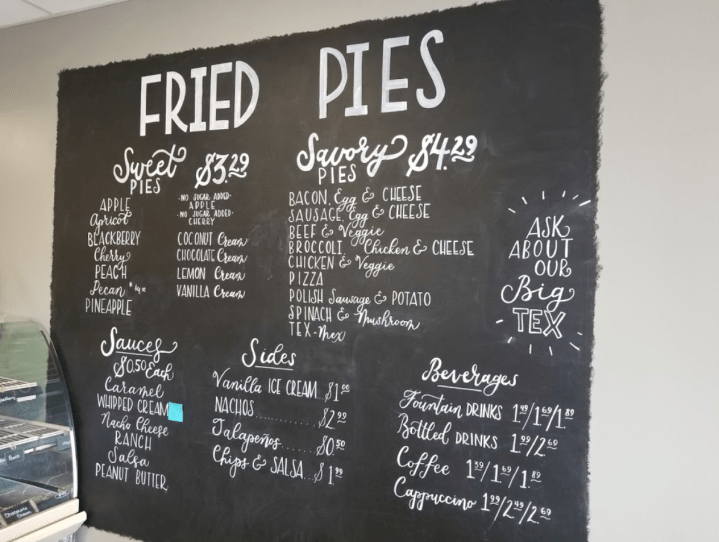 FRIED PIES
Sweet PIES $3.29
APPLE
Apricot
BLACKBERRY
Cherry
PEACH
Pecan
PINEAPPLE
-NO SUGAR ADDED-
APPLE
-NO SUGAR ADDED-
CHERRY
COCONUT Cream
CHOCOLATE Cream
LEMON Cream
VANILLA Cream
Savory PIES $4.29
BACON, Egg & CHEESE
SAUSAGE, Egg & CHEESE
BEEF & Veggie
BROCCOLI, Chicken & CHEESE
CHICKEN & Veggie
PIZZA
POLISH Sausage & POTATO
SPINACH & Mushroom
TEX-Mex
ASK
ABOUT
OUR
Big
TEX
Sauces
$0.50 Each
Caramel
WHIPPED CREAM
Nacho Cheese
RANCH
Salsa
PEANUT BUTTER
Sides
Vanilla ICE CREAM...$1
NACHOS............$2.99
Jalapeños......$0.50
Chips & SALSA...$1.99
Beverages
Fountain DRINKS 1.49/1.69/1.89
Bottled DRINKS 1.99/2.69
Coffee 1.59/1.69/1.89
Cappuccino 1.99/2.49/2.69